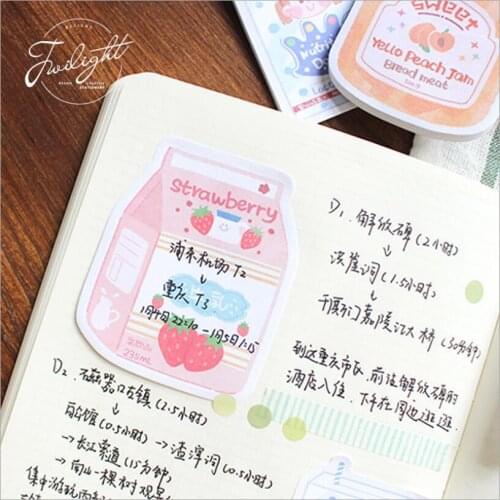 DESIGNS
Twilight
BRAND CREATIVE
STATIONERY
SWEET
Yello Peach Jam
Bread meat
Nutri
strawberry
浦东机场 T2
↓
重庆 T3
1月4日 22:10 - 1月5日 1:15
235mL
D1. 解放碑 (2小时)
↓
洪崖洞 (1.5小时)
↓
千厮门嘉陵江大桥 (30分钟)
到达重庆市区, 前往解放碑的
酒店入住. 下午在周边逛逛
D2. 磁器口古镇 (2.5小时)
↓
白公馆 (0.5小时) → 渣滓洞 (0.5小时)
→ 长江索道 (15分钟)
→ 南山一棵树观景
集中游玩